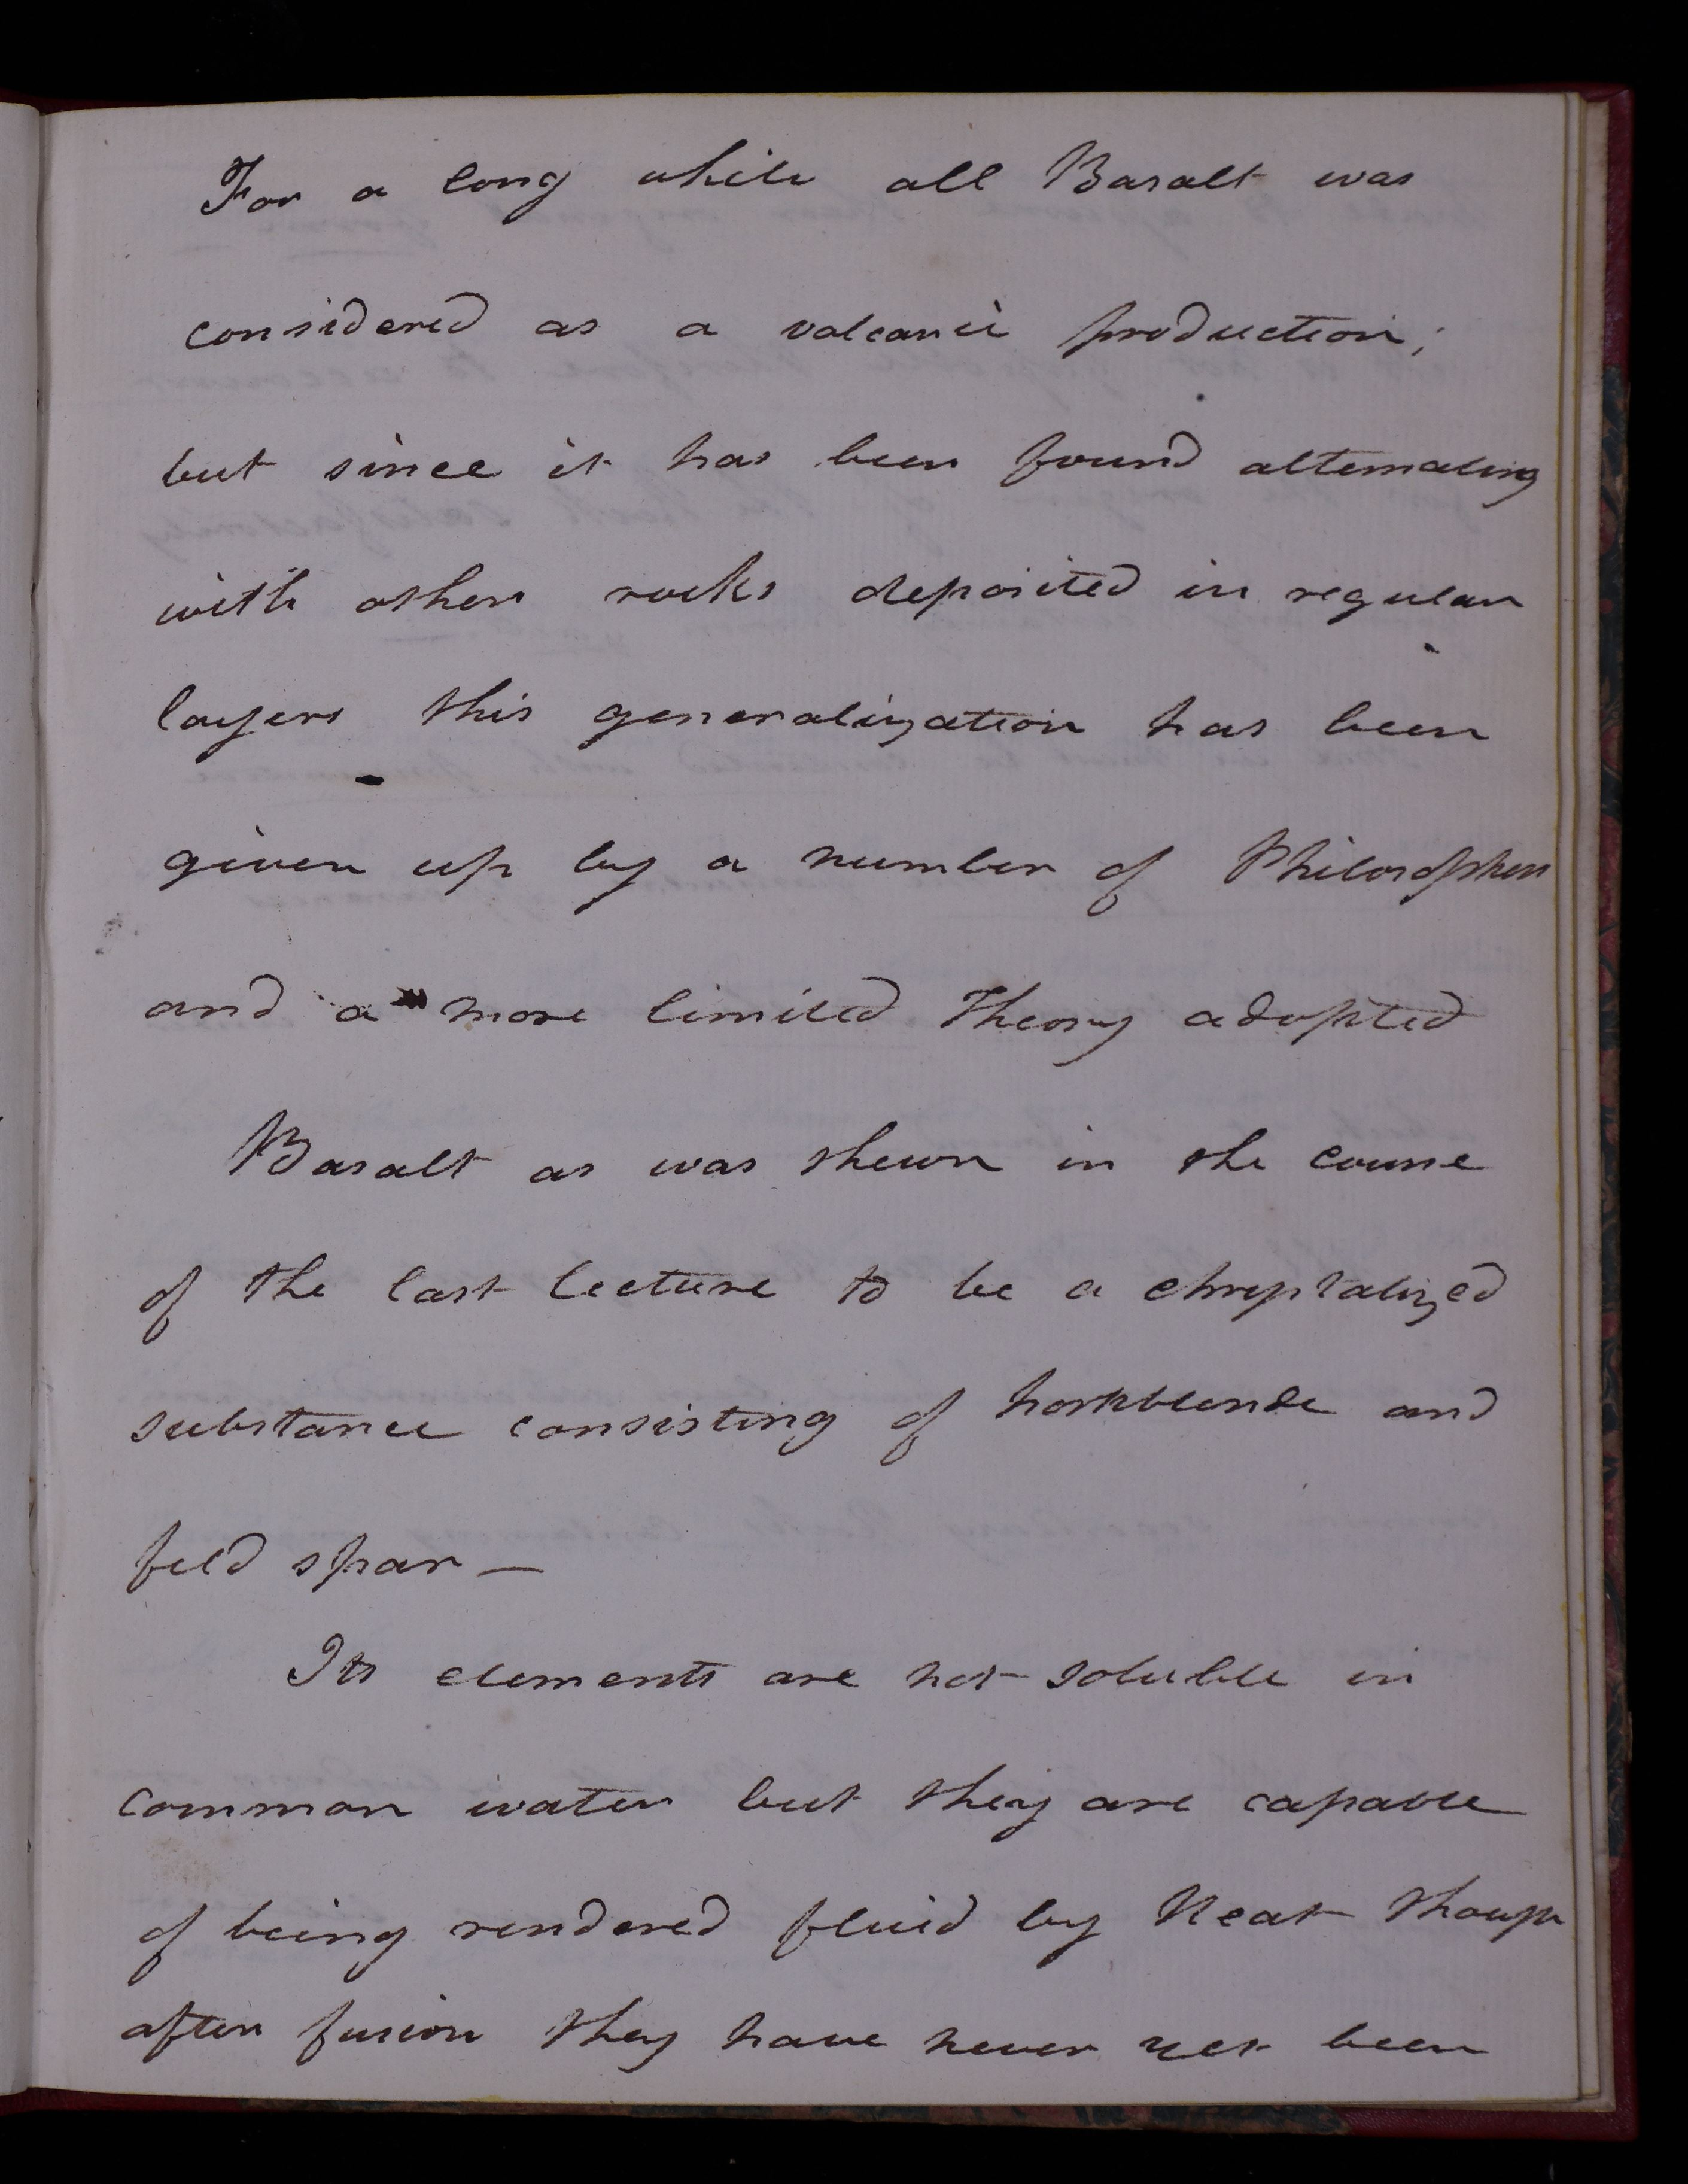 For a long while all Basalt was
considered as a volcanic production;
but since it has been found alternating
with other rocks deposited in regular
layers this generalization has been
given up by a number of Philosophers
and a more limited Theory adopted
Basalt as was shewn in the course
of the last lecture to be a chrystalized
substance consisting of hornblende and
feld spar —
Its elements are not soluble in
common water but they are capable
of being rendered fluid by Heat though
after fusion they have never yet been